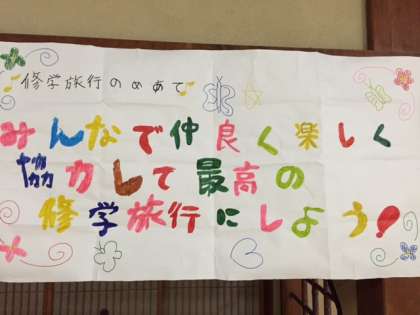 修学旅行のめあて
みんなで仲良く楽しく
協力して最高の
修学旅行にしよう!